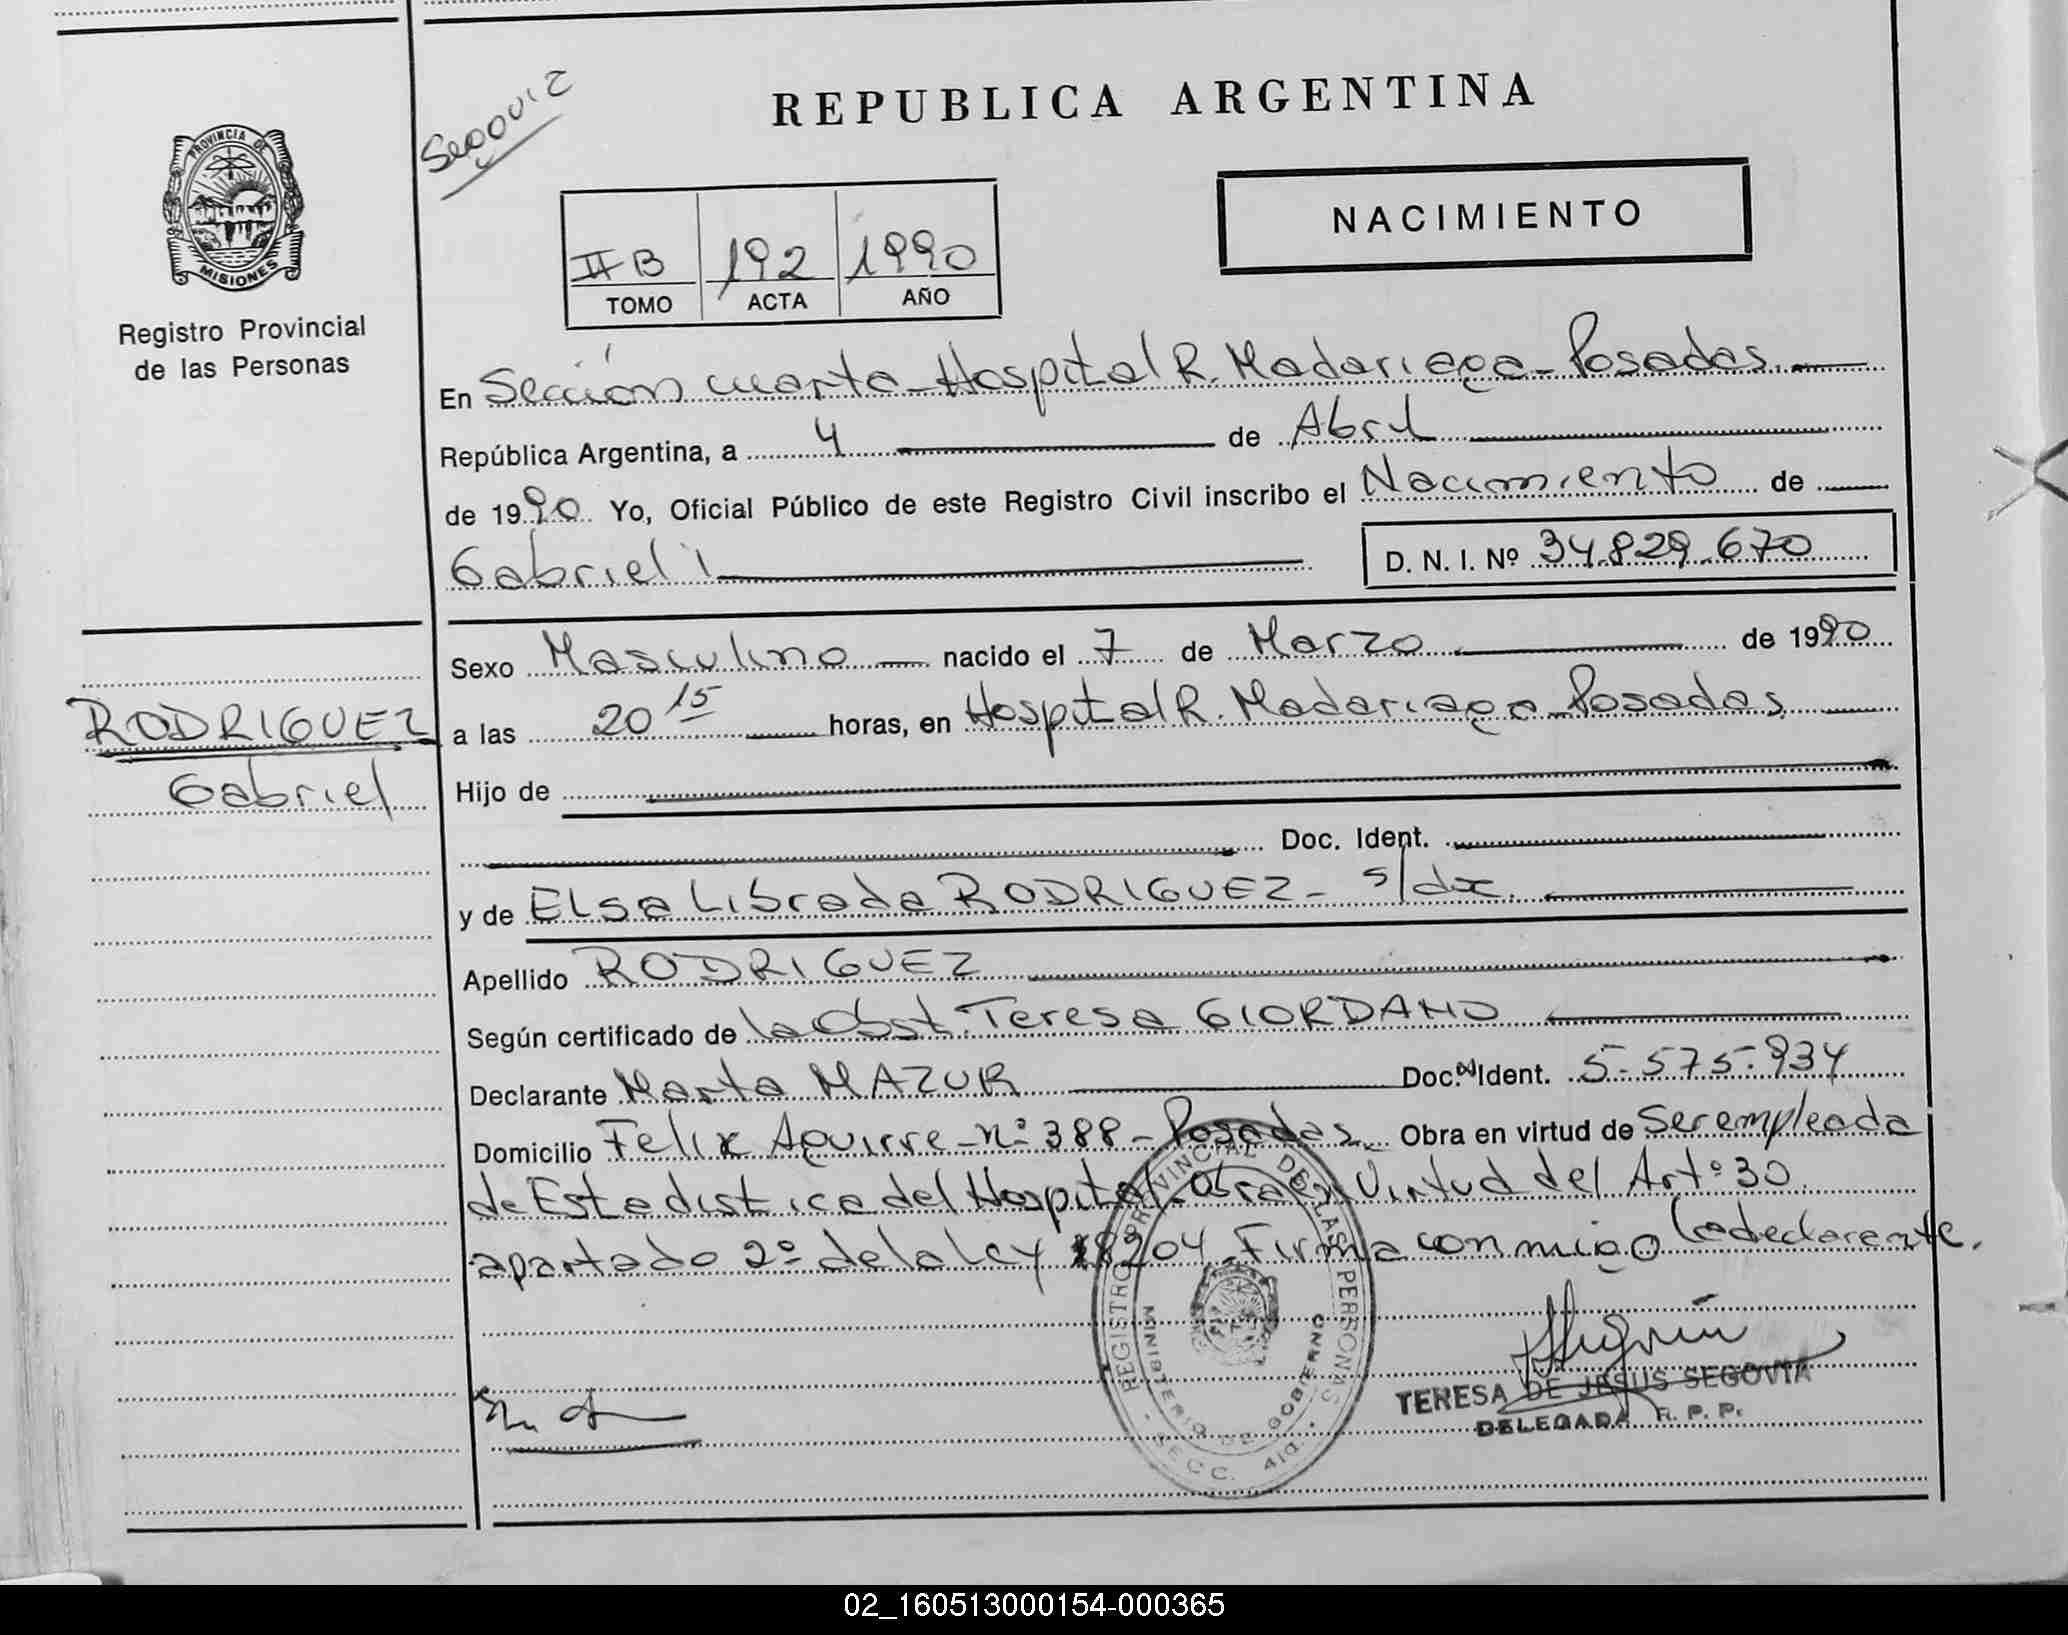 REPUBLICA ARGENTINA
PROVINCIA DE
MISIONES
Registro Provincial
de las Personas
NACIMIENTO
II B 192 1990
TOMO ACTA AÑO
En Sección cuarta - Hospital R. Madariaga - Posadas
República Argentina, a 4 de Abril
de 1990 Yo, Oficial Público de este Registro Civil inscribo el Nacimiento de
Gabriel
D. N. I. Nº 34.829.670
Sexo Masculino nacido el 7 de Marzo de 1990
RODRIGUEZ
Gabriel
a las 20 15 horas, en Hospital R. Madariaga - Posadas
Hijo de
Doc. Ident.
y de Elsa Librada RODRIGUEZ - s/dx.
Apellido RODRIGUEZ
Según certificado de la Obst. Teresa GIORDANO
Declarante Marta MAZUR Doc. Ident. 5.575.934
Domicilio Felix Aguirre - nº 388 - Posadas Obra en virtud de Ser empleada
de Estadistica del Hospital - Obra en Virtud del Artº 30
apartado 2º de la Ley 18204 Firma conmigo la declarante.
REGISTRO PROVINCIAL DE LAS PERSONAS
MINISTERIO DE GOBIERNO
SECC. 4ta.
TERESA DE JESUS SEGOVIA
DELEGADA R. P. P.
02_160513000154-000365